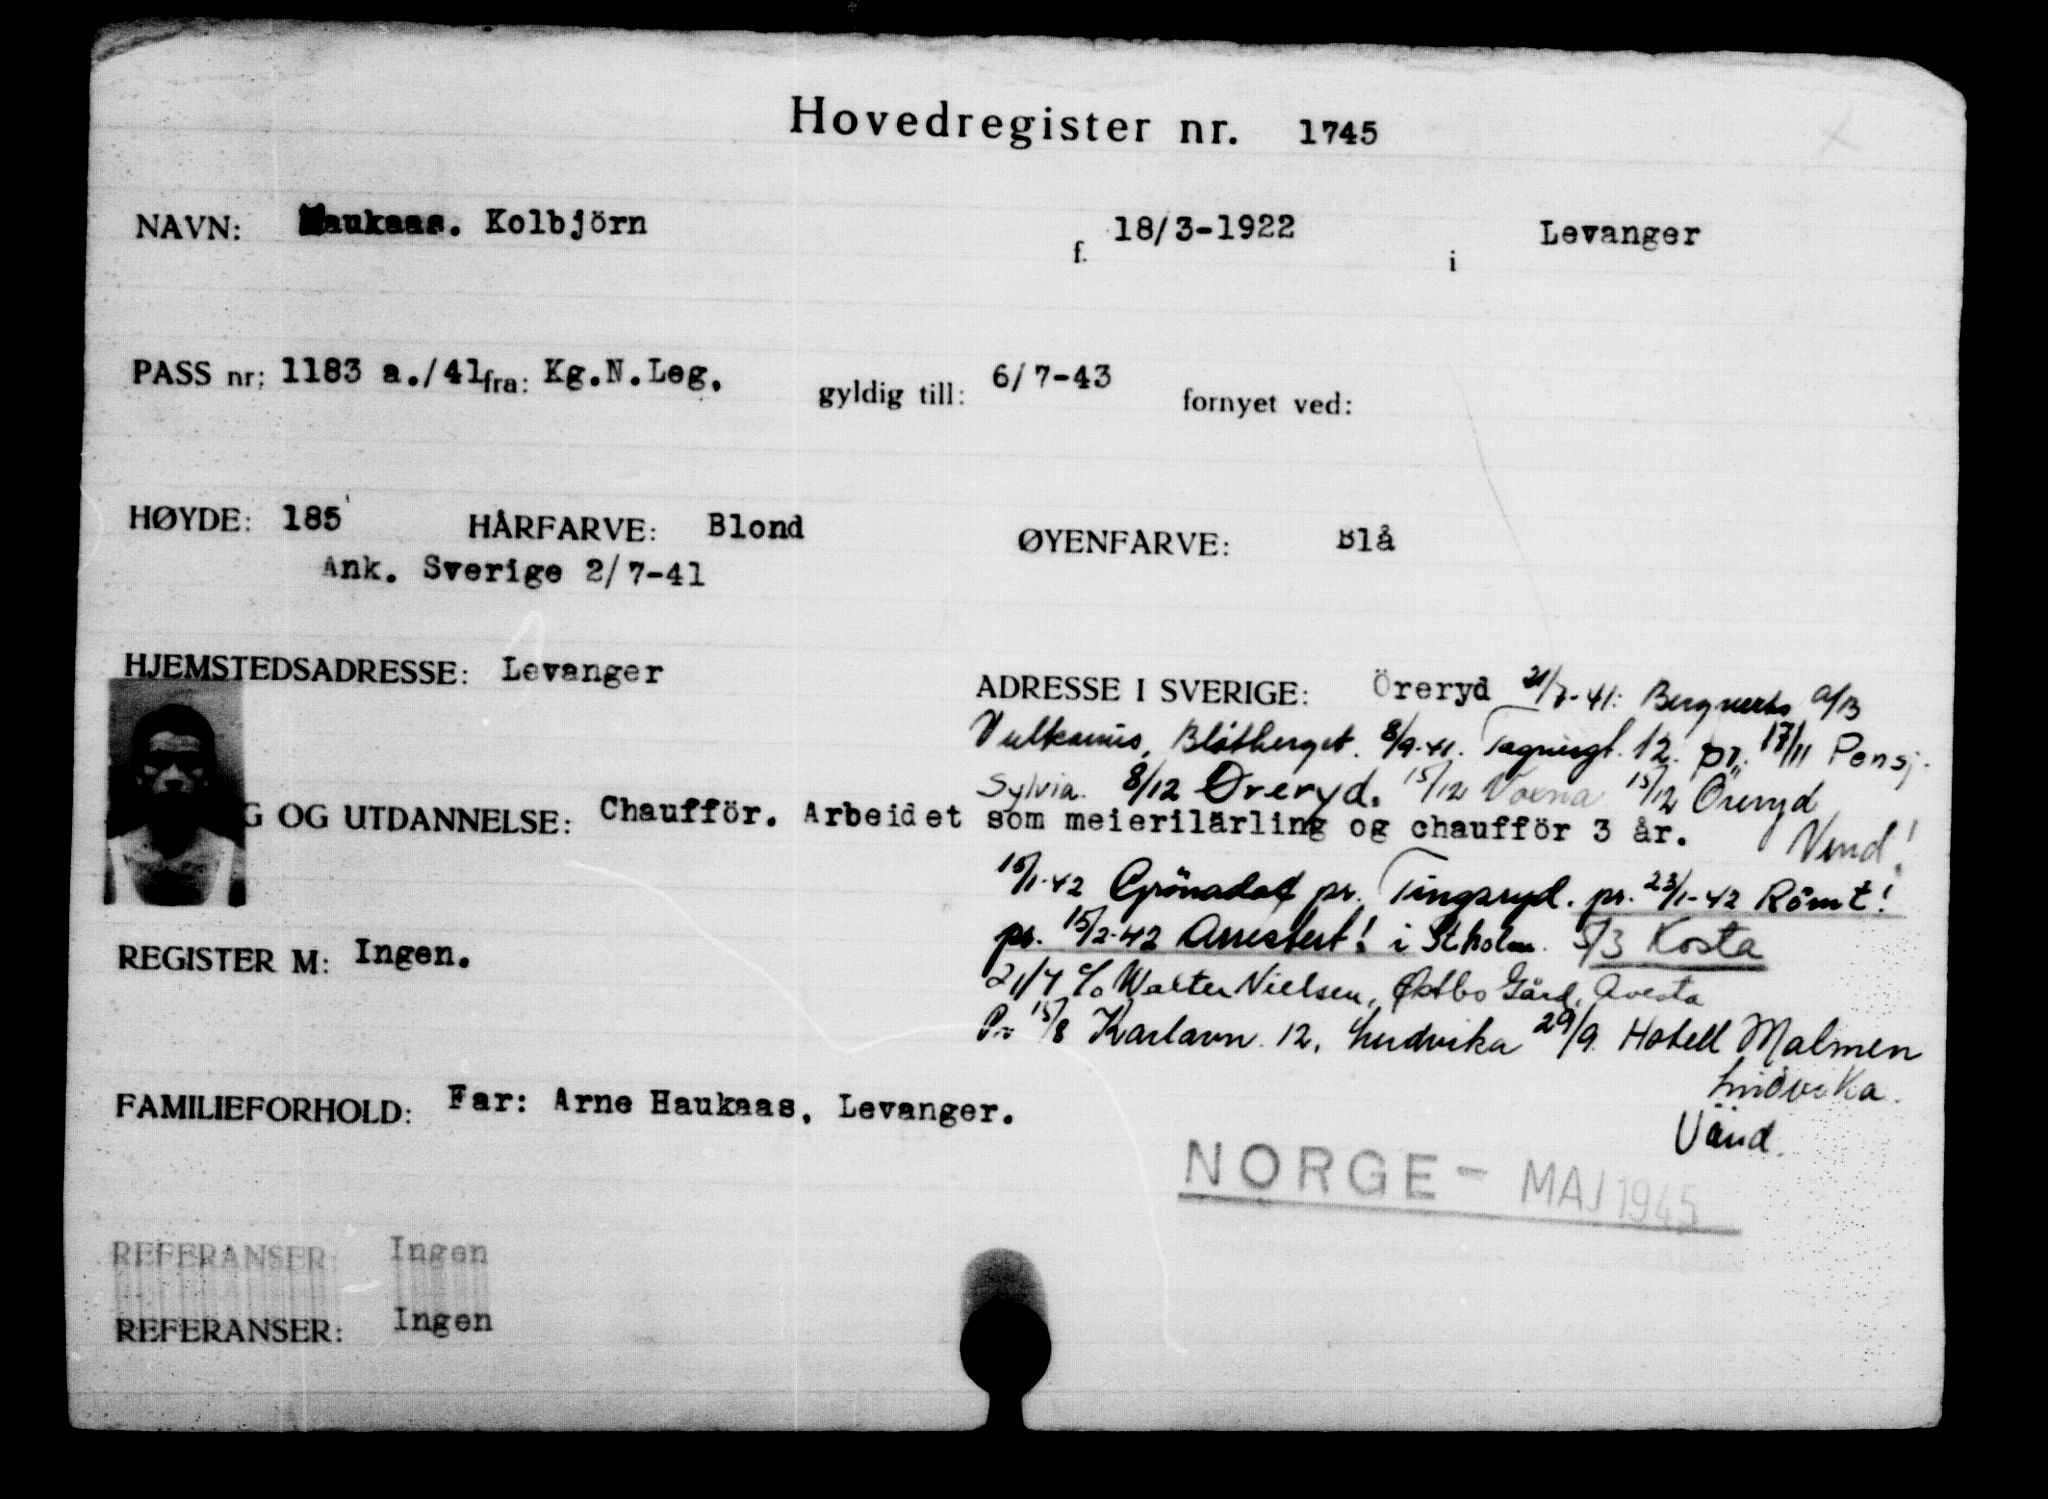 Hovedregister nr. 1745
NAVN: Haukaas. Kolbjörn f. 18/3-1922 i Levanger
PASS nr: 1183 a./41 fra: Kg.N.Leg. gyldig till: 6/7-43 fornyet ved:
HØYDE: 185 HÅRFARVE: Blond ØYENFARVE: Blå
Ank. Sverige 2/7-41
HJEMSTEDSADRESSE: Levanger
ADRESSE I SVERIGE: Öreryd 21/7-41: A/B
Vulkanus, Blötberget. 8/9-41. 12. pr. 17/11 Pensj.
Sylvia. 8/12 Øreryd. 15/12 15/12 Öreryd
G OG UTDANNELSE: Chaufför. Arbeidet som meierilärling og chaufför 3 år.
Vend!
15/1-42 Grönadal pr. Tingsryd. pr. 23/1-42 Römt!
pr. 15/2-42 Arrestert! i Stholm. 5/3 Kosta
REGISTER M: Ingen.
21/7 c/o Walter Nielsen, Østbo Gård, Avesta
Pr 15/8 Karlavn. 12, Ludvika 29/9. Hotell Malmen
Ludvika.
FAMILIEFORHOLD: Far: Arne Haukaas, Levanger.
Vänd.
NORGE - MAJ 1945
REFERANSER: Ingen
REFERANSER: Ingen